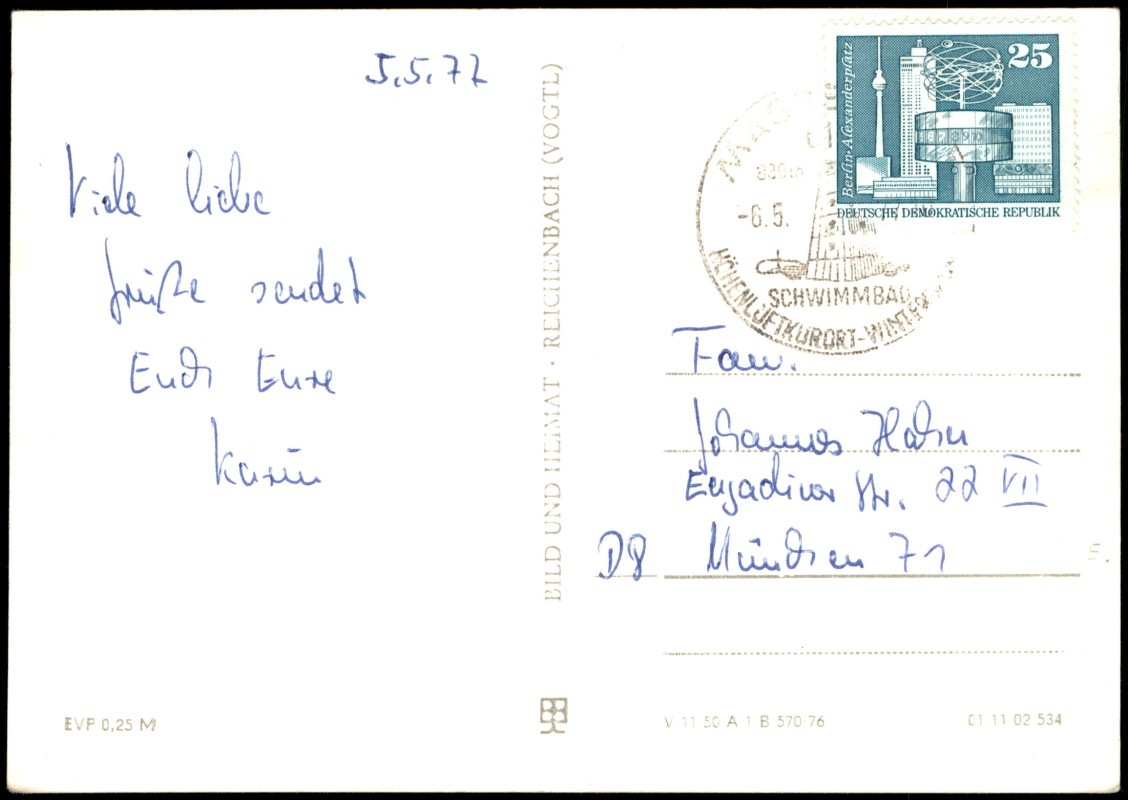 5.5.77
Viele liebe
Grüße sendet
Euch Eure
Karin
BILD UND HEIMAT · REICHENBACH (VOGTL)
25
Berlin-Alexanderplatz
DEUTSCHE DEMOKRATISCHE REPUBLIK
-6.5.
SCHWIMMBAD
HÖHENLUFTKURORT-WINTER
Fam.
Johannes Hahn
Engadiner Str. 22 VII
D8 München 71
EVP 0,25 M
V 11 50 A 1 B 570/76
01 11 02 534